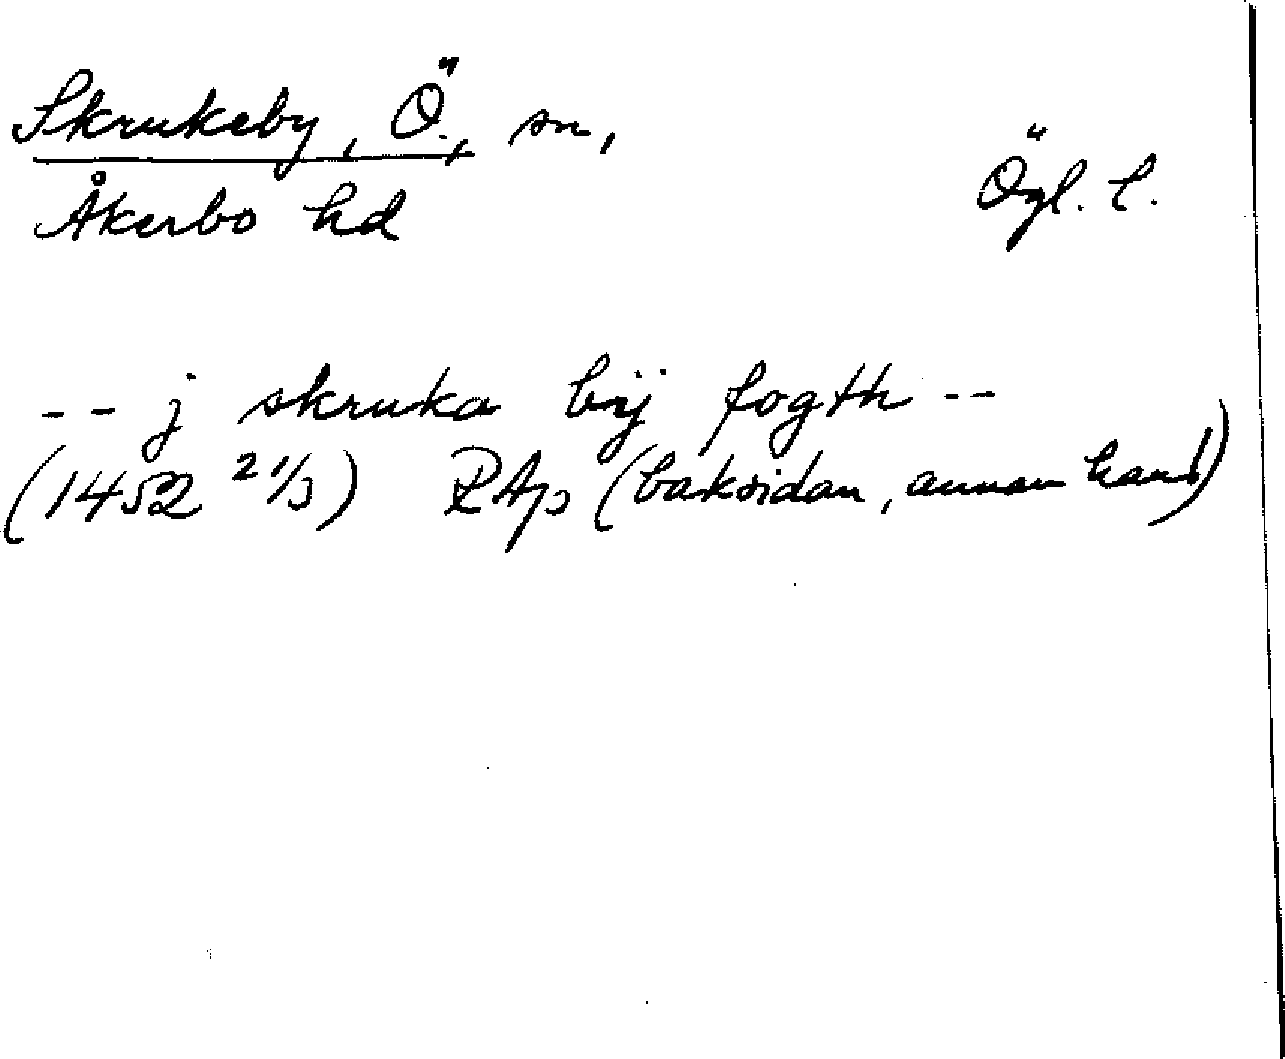 Skrukeby, Ö., sn,
Åkerbo hd
Ögl. l.
-- j skruka bÿ fogth --
(1452 21/3) RAp (baksidan, annan hand)